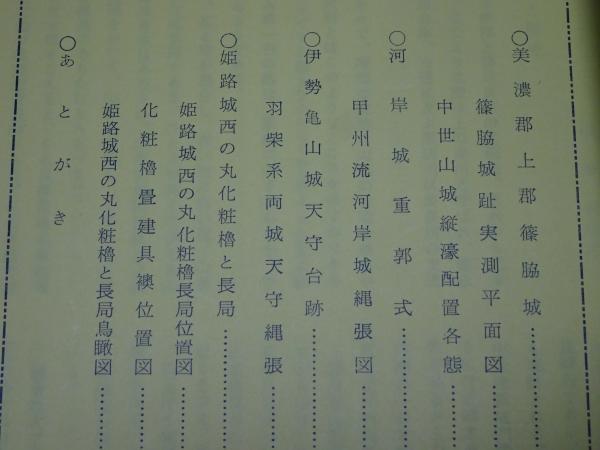 ○美濃郡上郡篠脇城…………
篠脇城趾実測平面図………
中世山城縦濠配置各態……
○河岸城重郭式…………
甲州流河岸城縄張図………
○伊勢亀山城天守台跡…………
羽柴系両城天守縄張………
○姫路城西の丸化粧櫓と長局…………
姫路城西の丸化粧櫓長局位置図………
化粧櫓畳建具襖位置図………
姫路城西の丸化粧櫓と長局鳥瞰図………
○あとがき